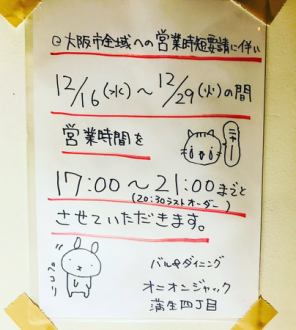 ◎大阪市全域への営業時短要請に伴い
12/16(水)～12/29(火)の間
営業時間を
ニャー
17:00～21:00までと
(20:30ラストオーダー)
させていただきます。
ペコリ
バル&ダイニング
オニオンジャック
蒲生四丁目